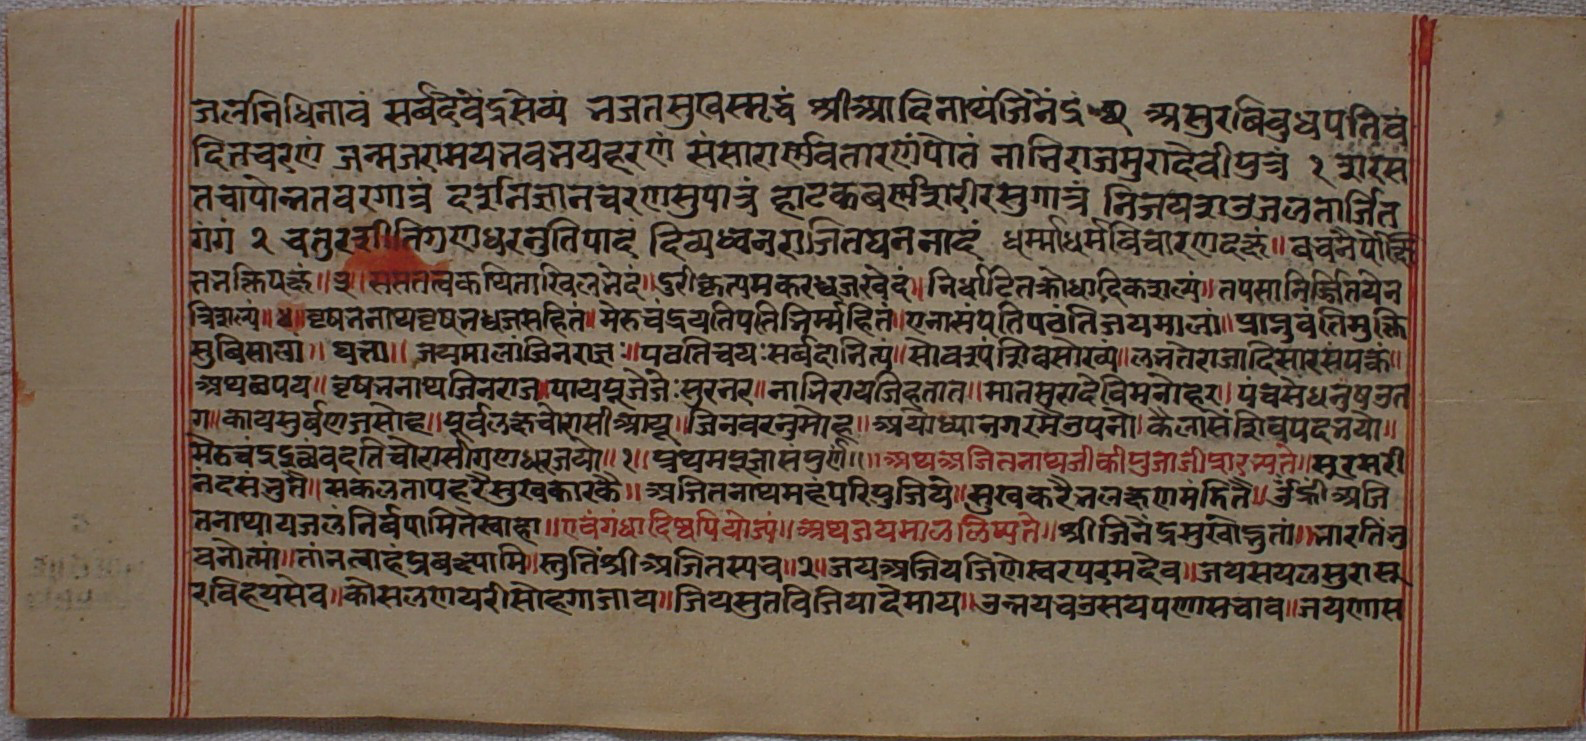 जलनिधिनावं सर्बदेवेंद्रसेव्यं नजतसुखस्मृद्धं श्रीआदिनाथंजिनेंद्रं असुरबिबुधपतिवं
दितचरणं जन्मजरामयनवनयहरणं संसारार्णवितारणंपोतं नानिराजमुरादेवीपुत्रं १
तचापोन्नतवरगात्रं निज्ञानचरणसुपात्रं हाटकबर्णशरीरसुगात्रं
गंगं २ चतुरशीतिगणधरनुतिपादं दिव्यध्वनराजितघननादं धर्म्माधर्मविचारणदक्षं॥
॥३॥सप्ततत्वकथिताखिलनेदं॥दुरीकृत्यमकरध्वजखेदं॥निर्धाटितक्रोधादिकशल्यं॥तपसानिर्ज्जितयेन
त्रिशल्यं॥४॥वृषननाथवृषनध्वजसहितं॥मेरुचंद्रयतिपतिनिर्म्महितं॥एनासंपतिपवंतिजयमालां॥प्राप्नुवंतिमुक्ति
सुबिसाला॥ घत्ता॥ जयमालांजिनराजः॥पवतिचयःसर्बदानित्यं॥
अथछपय॥वृषननाथजिनराज॥पायपूजेजेःसुरनर॥नानिरायजिहतात॥मातमुरादेविमनोहर॥पंचसेधनुषउत
ग॥कायसुर्बणजसोह॥पूर्वलक्षचोरासीआयू॥जिनवरनुमोह॥अयोध्यानगरमेउपनो॥कैलासेंशिवपदनयो॥
मेरुचंद्र चोरासीगणधरजयो॥१॥प्रथमपूजासंपुर्ण॥॥अथअजितनाथजीकीपुजाजीप्रारभ्यते॥सुरसरी
नंदसंनुतै॥सकलतापहरैसुखकारकै॥अजितनाथमहंपरिपुजिये॥सुखकरैनलक्षणमंडितै॥उँह्रीअजि
तनाथायजलंनिर्बपामितेस्वाहा॥एवंगंधादिष्वपियोज्यं॥अथजयमाललिष्यते॥श्रीजिनेंद्रमुखोद्नुतां॥नारतिंनु
वनोत्मां॥तांनत्वाहंप्रबक्ष्यामि॥स्तुतिंश्रीअजितस्यच॥१॥जयअजियजिणेस्वरपरमदेव॥जयसयलसुरासु
रविहयसेव॥कोसलणयरीसोहगाजाय॥जियसुतविजियादेमाय॥उन्नयचउसयपणासचाव॥जयणास